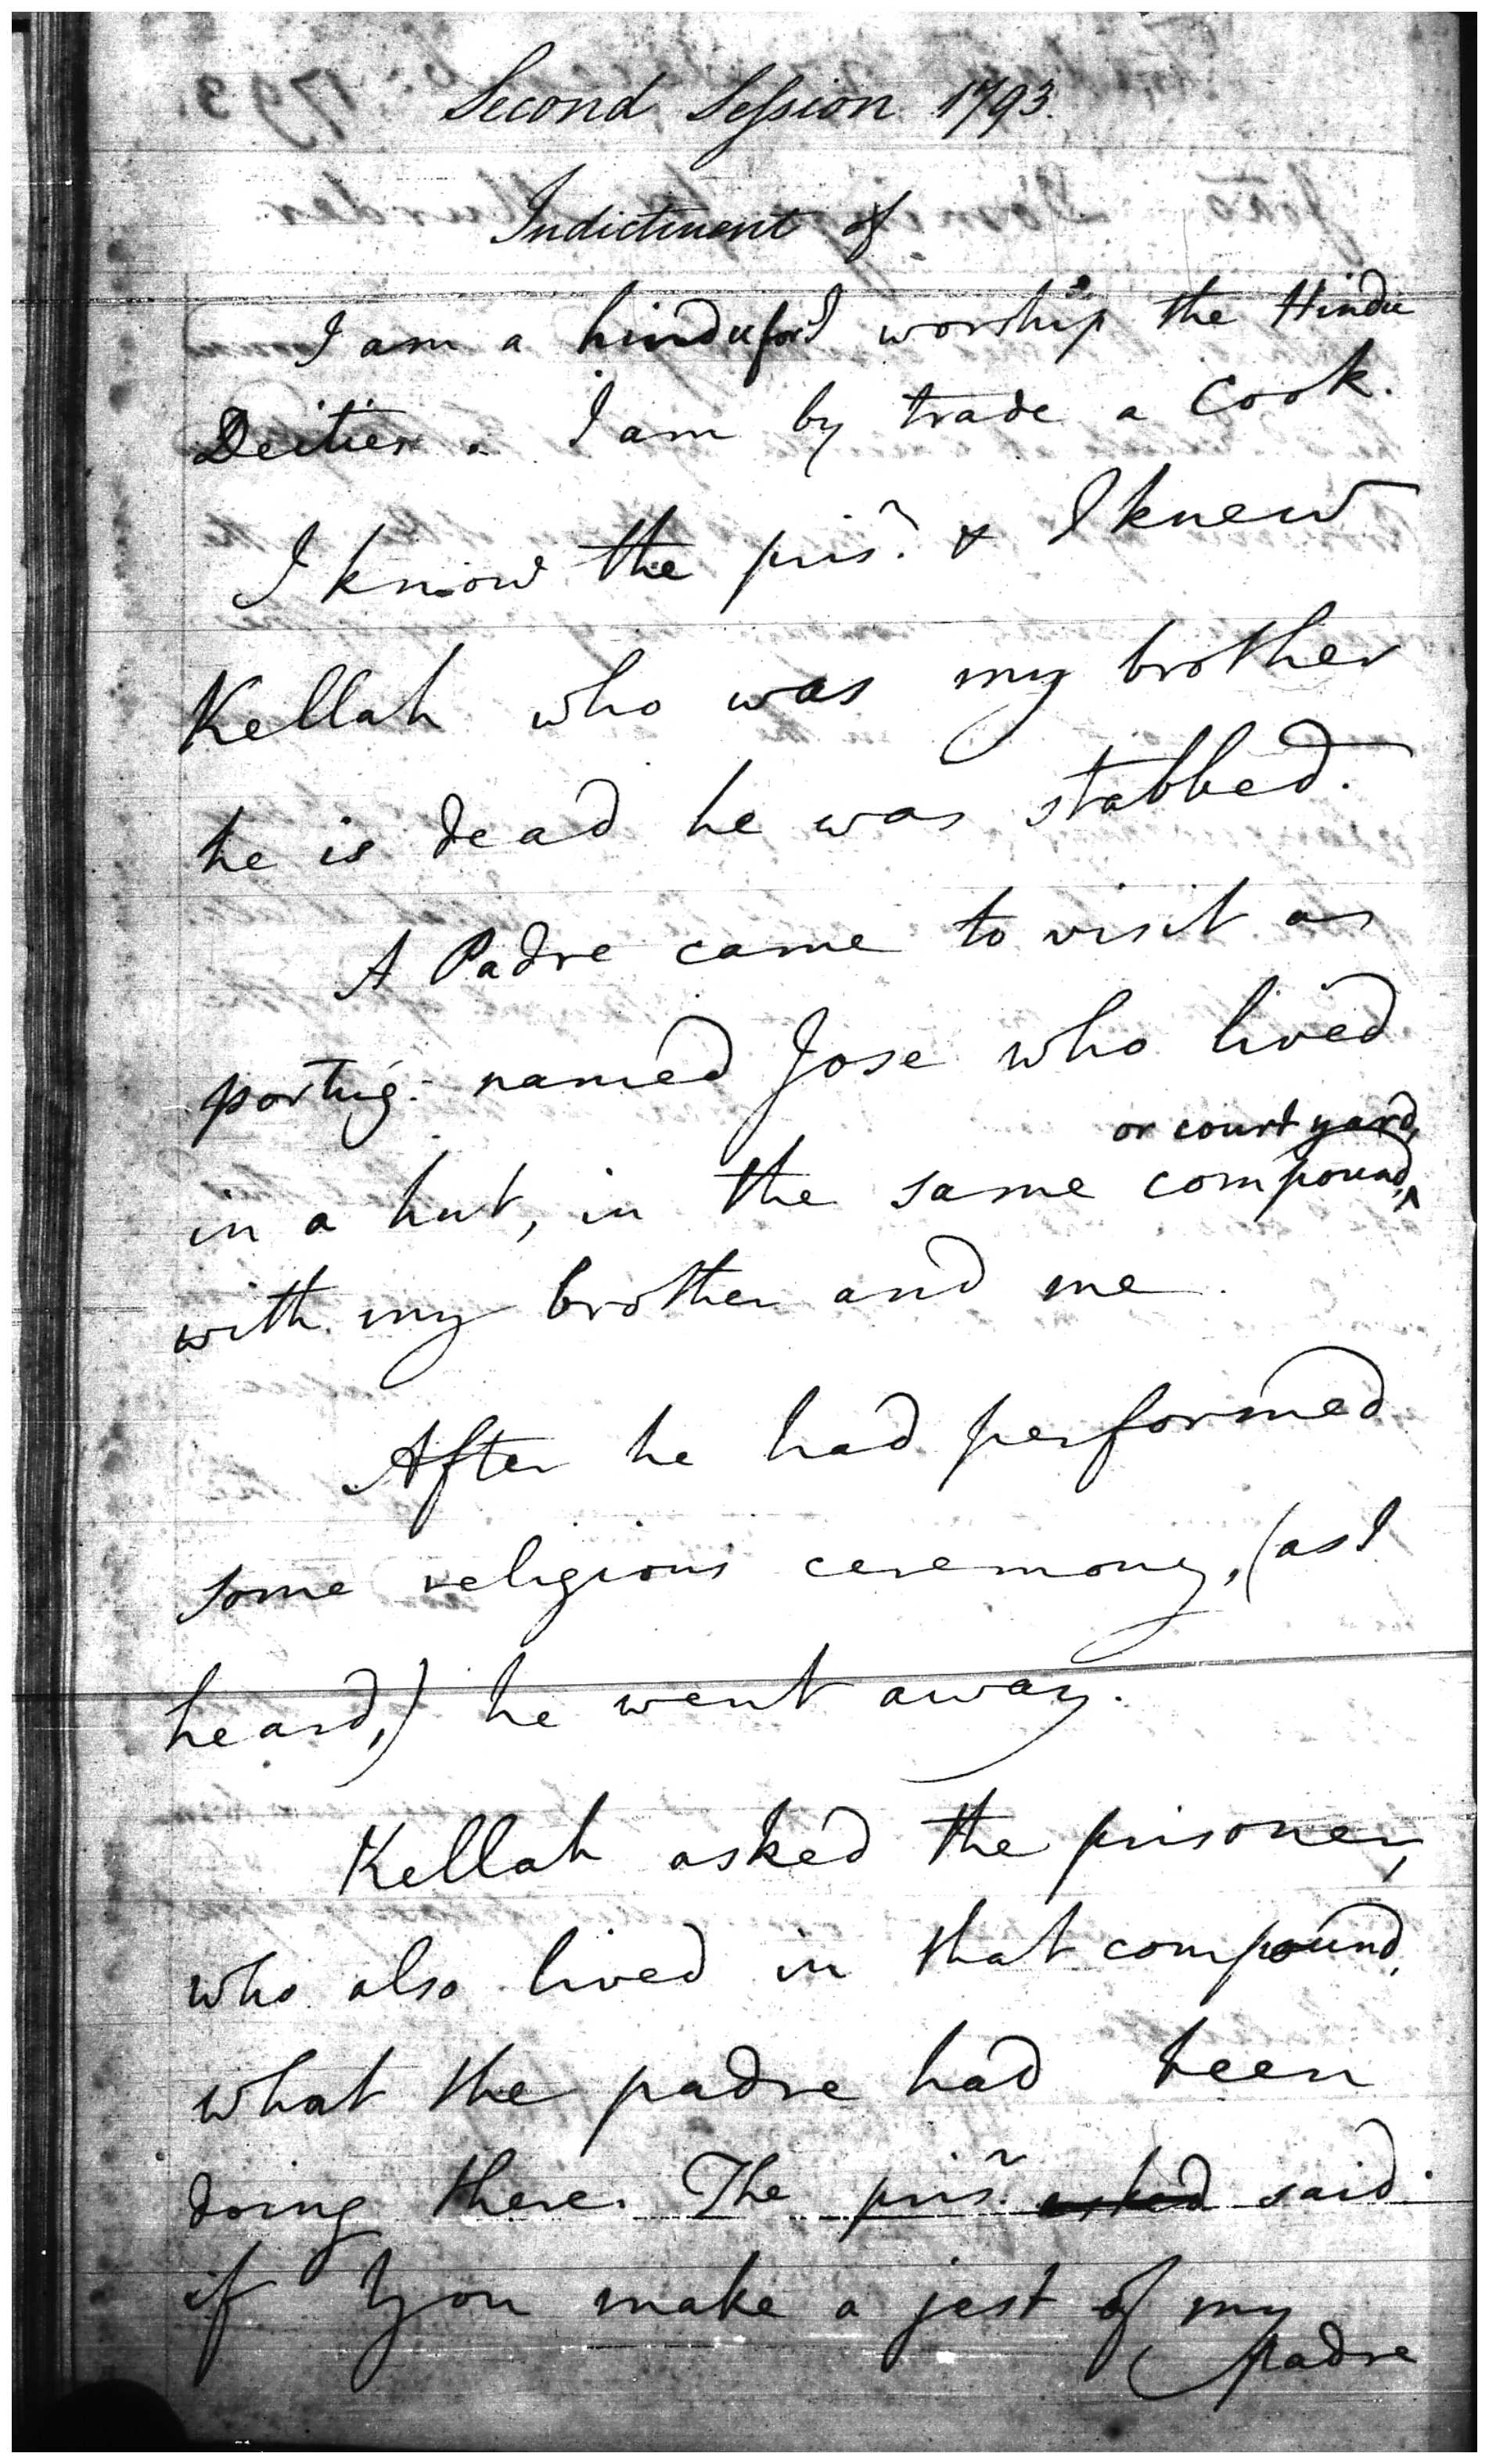 Second Session 1793.
Indictment of
I am a hindu for I worship the Hindu
Deities. I am by trade a Cook.
I know the prisr. & I knew
Kellah who was my brother
he is dead he was stabbed.
A Padre came to visit as
portug: named Jose who lived
or court yard,
in a hut, in the same compound,
with my brother and me.
After he had performed
some religious ceremony, (as I
heard,) he went away.
Kellah asked the prisoner,
who also lived in that compound,
what the padre had been
doing there. The prisr. asked said
if you make a jest of my
padre